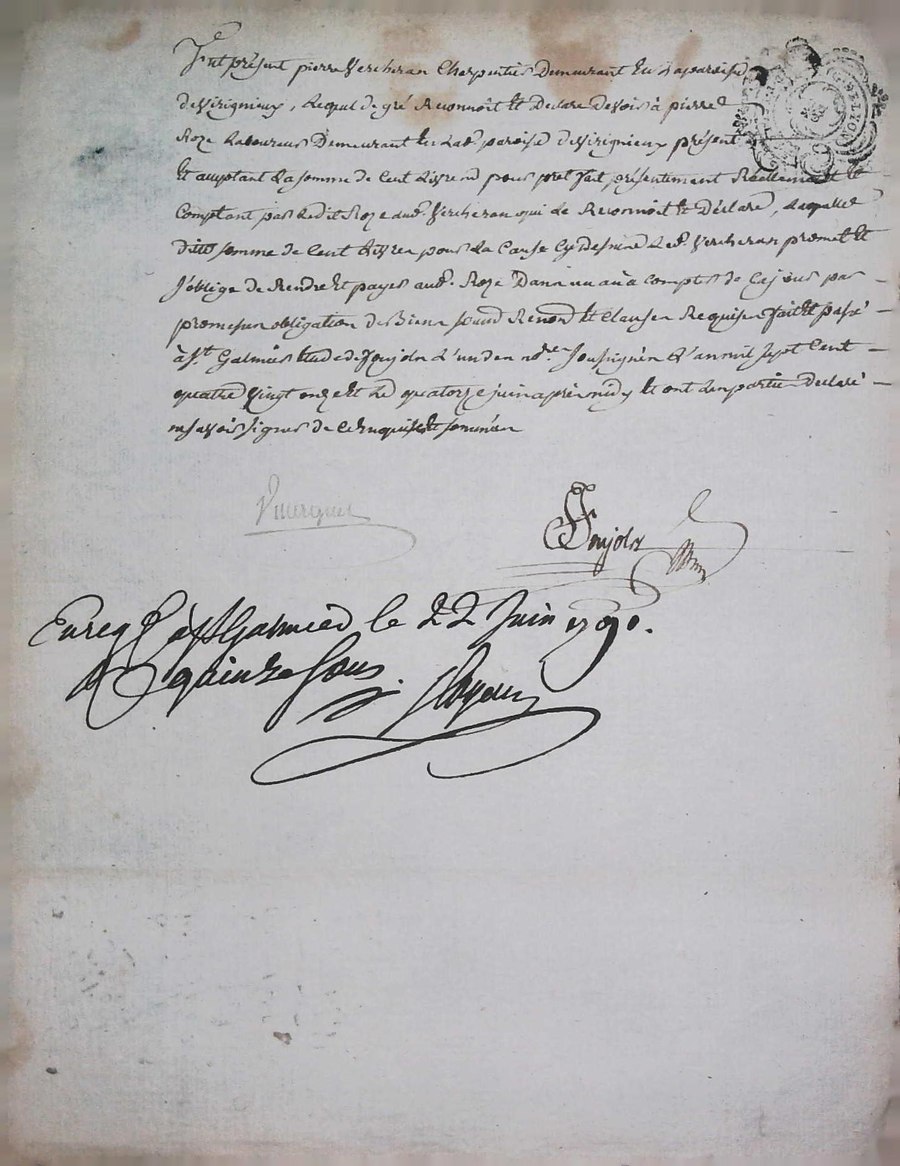 Fut présent pierre Vercheran Charpentier Demeurant en la paroisse
de Virignieux, Lequel de gré Reconnoît et Declare devoir à pierre
Roze Laboureur Demeurant en lad. paroisse de Virignieux présent
et acceptant La somme de Cent Livres pour pret fait présentement Réellement et
Comptant par Ledit Roze aud. Vercheran qui Le Reconnoît et Déclare, Laquelle
ditte somme de Cent Livres pour La Cause Cy Dessus Led. Vercheran promet et
s'oblige de Rendre et payer aud. Roze Dans un an à compter de Ce jour par
promesse obligation de Biens Renond et Clauses Requises fait et passé
à St. Galmier Etude de Foujols L'un des nores. soussignés L'an mil sept Cent
quatre vingt onze et Le quatorze juin après midy et ont Les parties Declaré
ne savoir signer de Ce Enquises et sommées
Foujols
Enreg à St Galmier le 22 Juin
R quinze Sous.